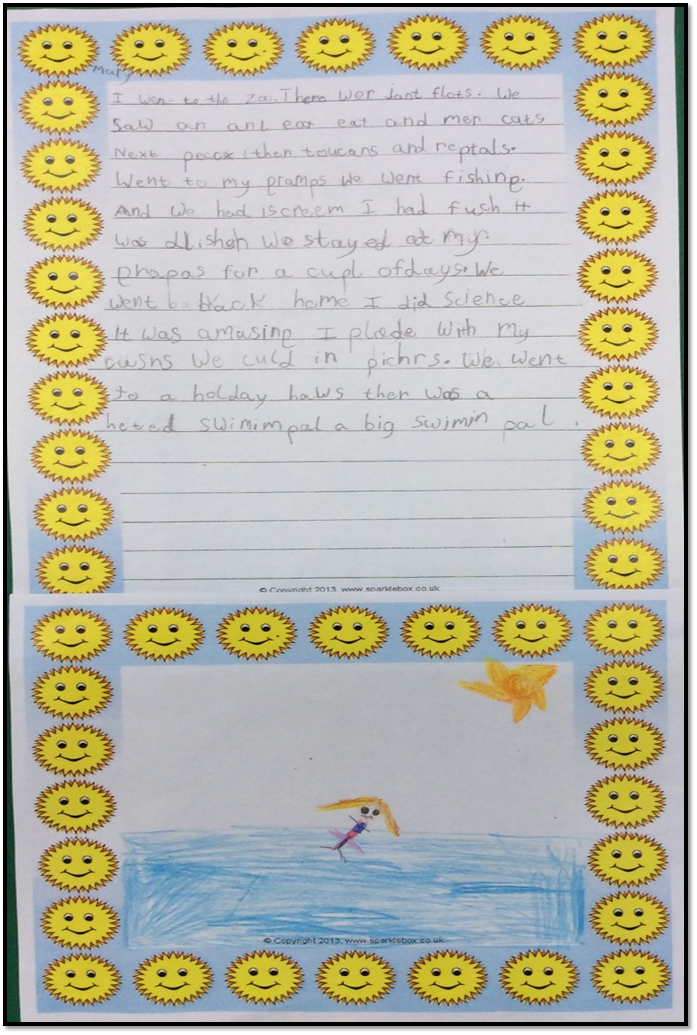 Mary
I wen to the zoo. There wer jant flots. We
saw an ant ear eat and mer cats
Next pecox then toucans and reptals.
Went to my gramps we went fishing.
And we had iscreem I had fush it
was dlishah We stayed at my
phapas for a cupl of days. We
went back home I did science
It was amasing I plade with my
cwsns We culd in pichrs. We went
to a holday haws ther was a
heted swimim pal a big swimin pal.
© Copyright 2013, www.sparklebox.co.uk
© Copyright 2013, www.sparklebox.co.uk